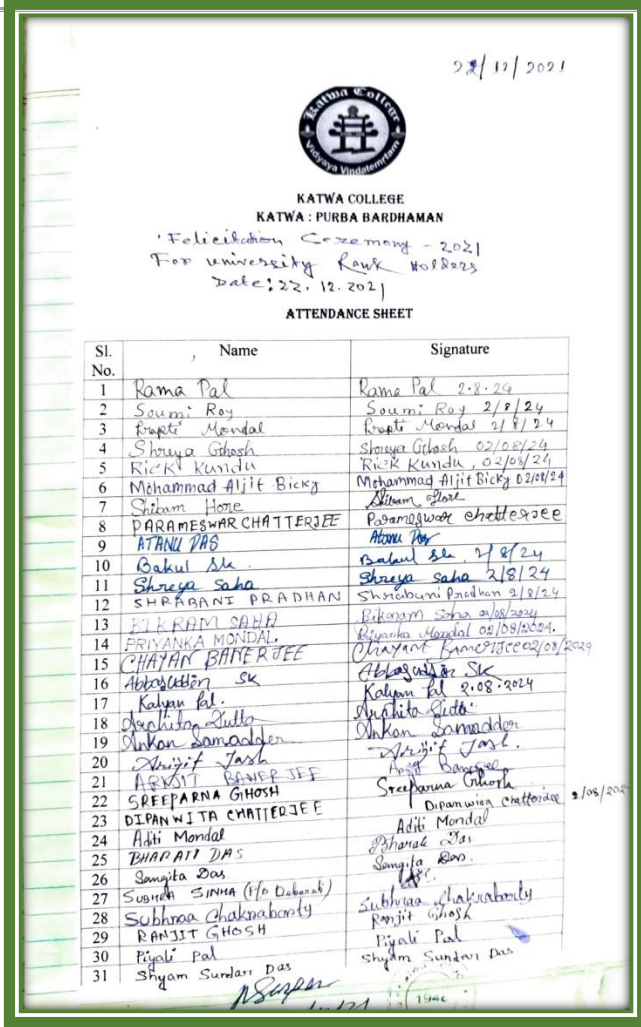 22/12/2021
Katwa College
Vidyaya Vindatemrtam
KATWA COLLEGE
KATWA : PURBA BARDHAMAN
Felicitation Ceremony - 2021
For university Rank Holders
Date: 22.12.2021
ATTENDANCE SHEET
Sl. No. Name Signature
1 Rama Pal Rama Pal 2.8.24
2 Soumi Roy Soumi Roy 2/8/24
3 Prapti Mondal Prapti Mondal 2/8/24
4 Shreya Ghosh Shreya Ghosh 02/08/24
5 Rick Kundu Rick Kundu, 02/08/24
6 Mohammad Aljit Bicky Mohammad Aljit Bicky 02/08/24
7 Shibam Hore Shibam Hore
8 PARAMESWAR CHATTERJEE Parameswar chatterjee
9 ATANU DAS Atanu Das
10 Bakul Sk Bakul Sk. 2/8/24
11 Shreya saha Shreya saha 2/8/24
12 SHRABANI PRADHAN Shrabuni Pradhan 2/8/24
13 BIKRAM SAHA Bikram Saha 02/08/2024
14 PRIYANKA MONDAL. Priyanka Mondal 02/08/2024.
15 CHAYAN BANERJEE Chayan Banerjee 02/08/2024
16 Abbasuddin SK Abbasuddin SK
17 Kalyan Pal. Kalyan Pal 2.08.2024
18 Arphita Dutta Arphita Dutta
19 Ankan Samadder Ankan Samadder
20 Arijit Jash Arijit Jash.
21 BANERJEE Banerjee
22 SREEPARNA GHOSH Sreeparna Ghosh
23 DIPANWITA CHATTERJEE Dipanwita Chatterjee 2/08/202
24 Aditi Mondal Aditi Mondal
25 BHARATI DAS Bharati Das
26 Sangita Das. Sangita Das.
27 SUBHRA SINHA (F/o Debarati)
28 Subhraa Chakraborty Subhraa Chakraborty
29 RANJIT GHOSH Ranjit Ghosh
30 Piyali Pal Piyali Pal
31 Shyam Sundari Das Shyam Sundari Das